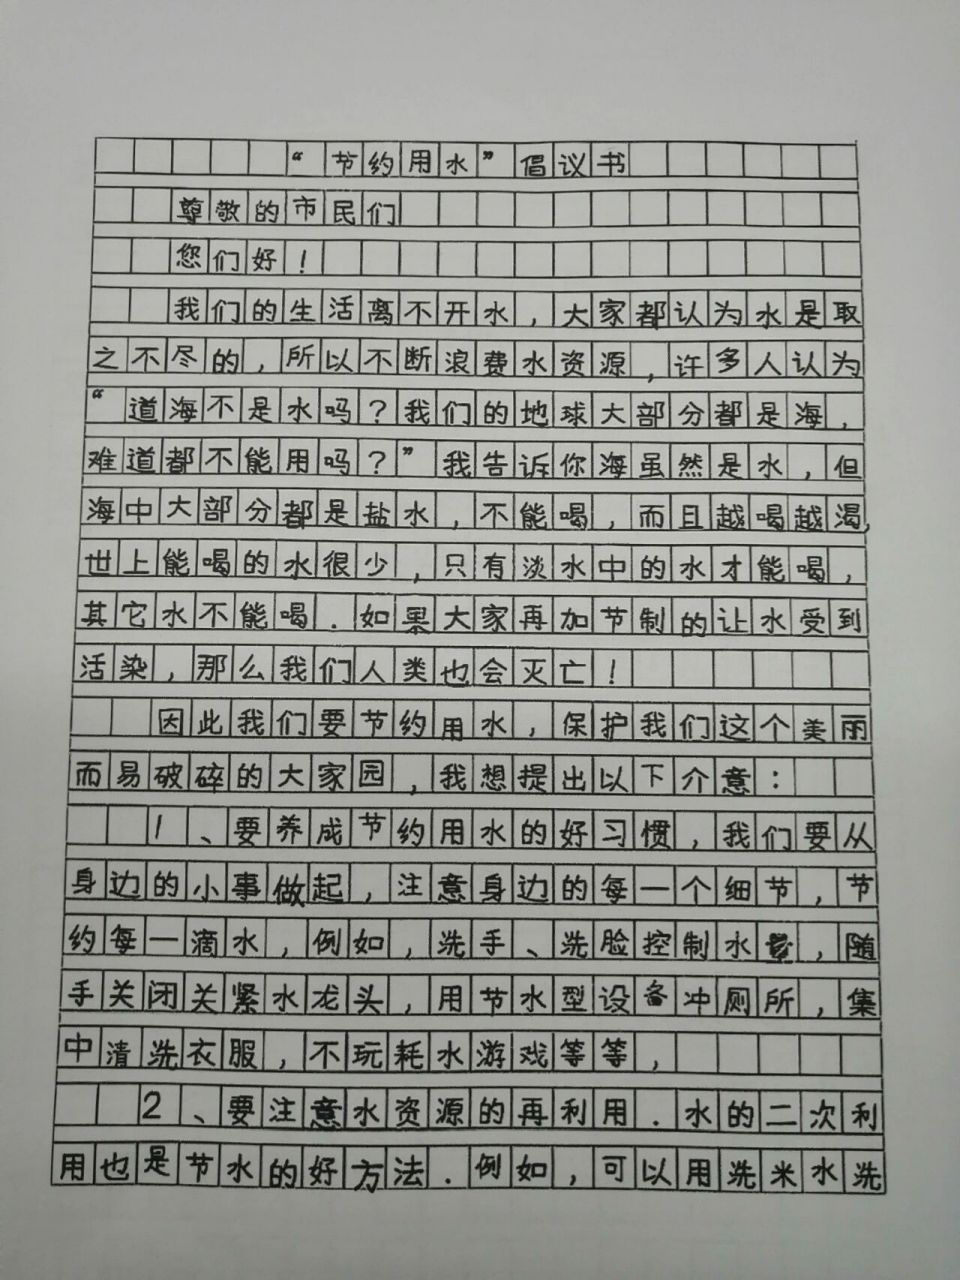 “节约用水”倡议书
尊敬的市民们
您们好!
我们的生活离不开水,大家都认为水是取
之不尽的,所以不断浪费水资源,许多人认为
“道海不是水吗?我们的地球大部分都是海,
难道都不能用吗?”我告诉你海虽然是水,但
海中大部分都是盐水,不能喝,而且越喝越渴,
世上能喝的水很少,只有淡水中的水才能喝,
其它水不能喝.如果大家再加节制的让水受到
活染,那么我们人类也会灭亡!
因此我们要节约用水,保护我们这个美丽
而易破碎的大家园,我想提出以下介意:
1、要养成节约用水的好习惯,我们要从
身边的小事做起,注意身边的每一个细节,节
约每一滴水,例如,洗手、洗脸控制水量,随
手关闭关紧水龙头,用节水型设备冲厕所,集
中清洗衣服,不玩耗水游戏等等,
2、要注意水资源的再利用.水的二次利
用也是节水的好方法.例如,可以用洗米水洗